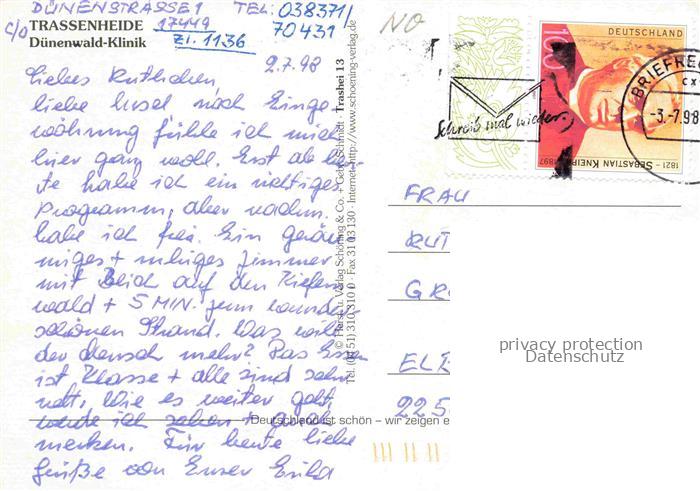 DÜNENSTRASSE 1 TEL: 038371/
c/o TRASSENHEIDE 17449 70431
Dünenwald-Klinik Zi. 1136
2.7.98
Liebes Ruthchen,
liebe Insel nach Einge-
wöhnung fühle ich mich
hier ganz wohl. Erst ab heu-
te habe ich ein richtiges
Programm, aber nachm.
habe ich frei. Ein geräu
miges + ruhiges Zimmer
mit Blick auf den Kiefern
wald + 5 MIN. zum wunder
schönen Strand. Was will
der Mensch mehr? Das Essen
ist Klasse + alle sind sehr
nett, wie es weiter geht,
werde ich sehen +
merken. Für heute liebe
Grüße von Eurer
© Herst. u. Verlag Schöning & Co. + Gebr. Schmidt · Trashei 13
Tel. (04 51) 310 310 · Fax 31 03 130 · Internet: http://www.schoening-verlag.de
Deutschland ist schön – wir zeigen e
NO
Schreib mal wieder
DEUTSCHLAND
100
1821 – SEBASTIAN KNEIPP 1897
BRIEFRE
-3.-7.98
FRAU
RUT
GR
EL
225
privacy protection
Datenschutz